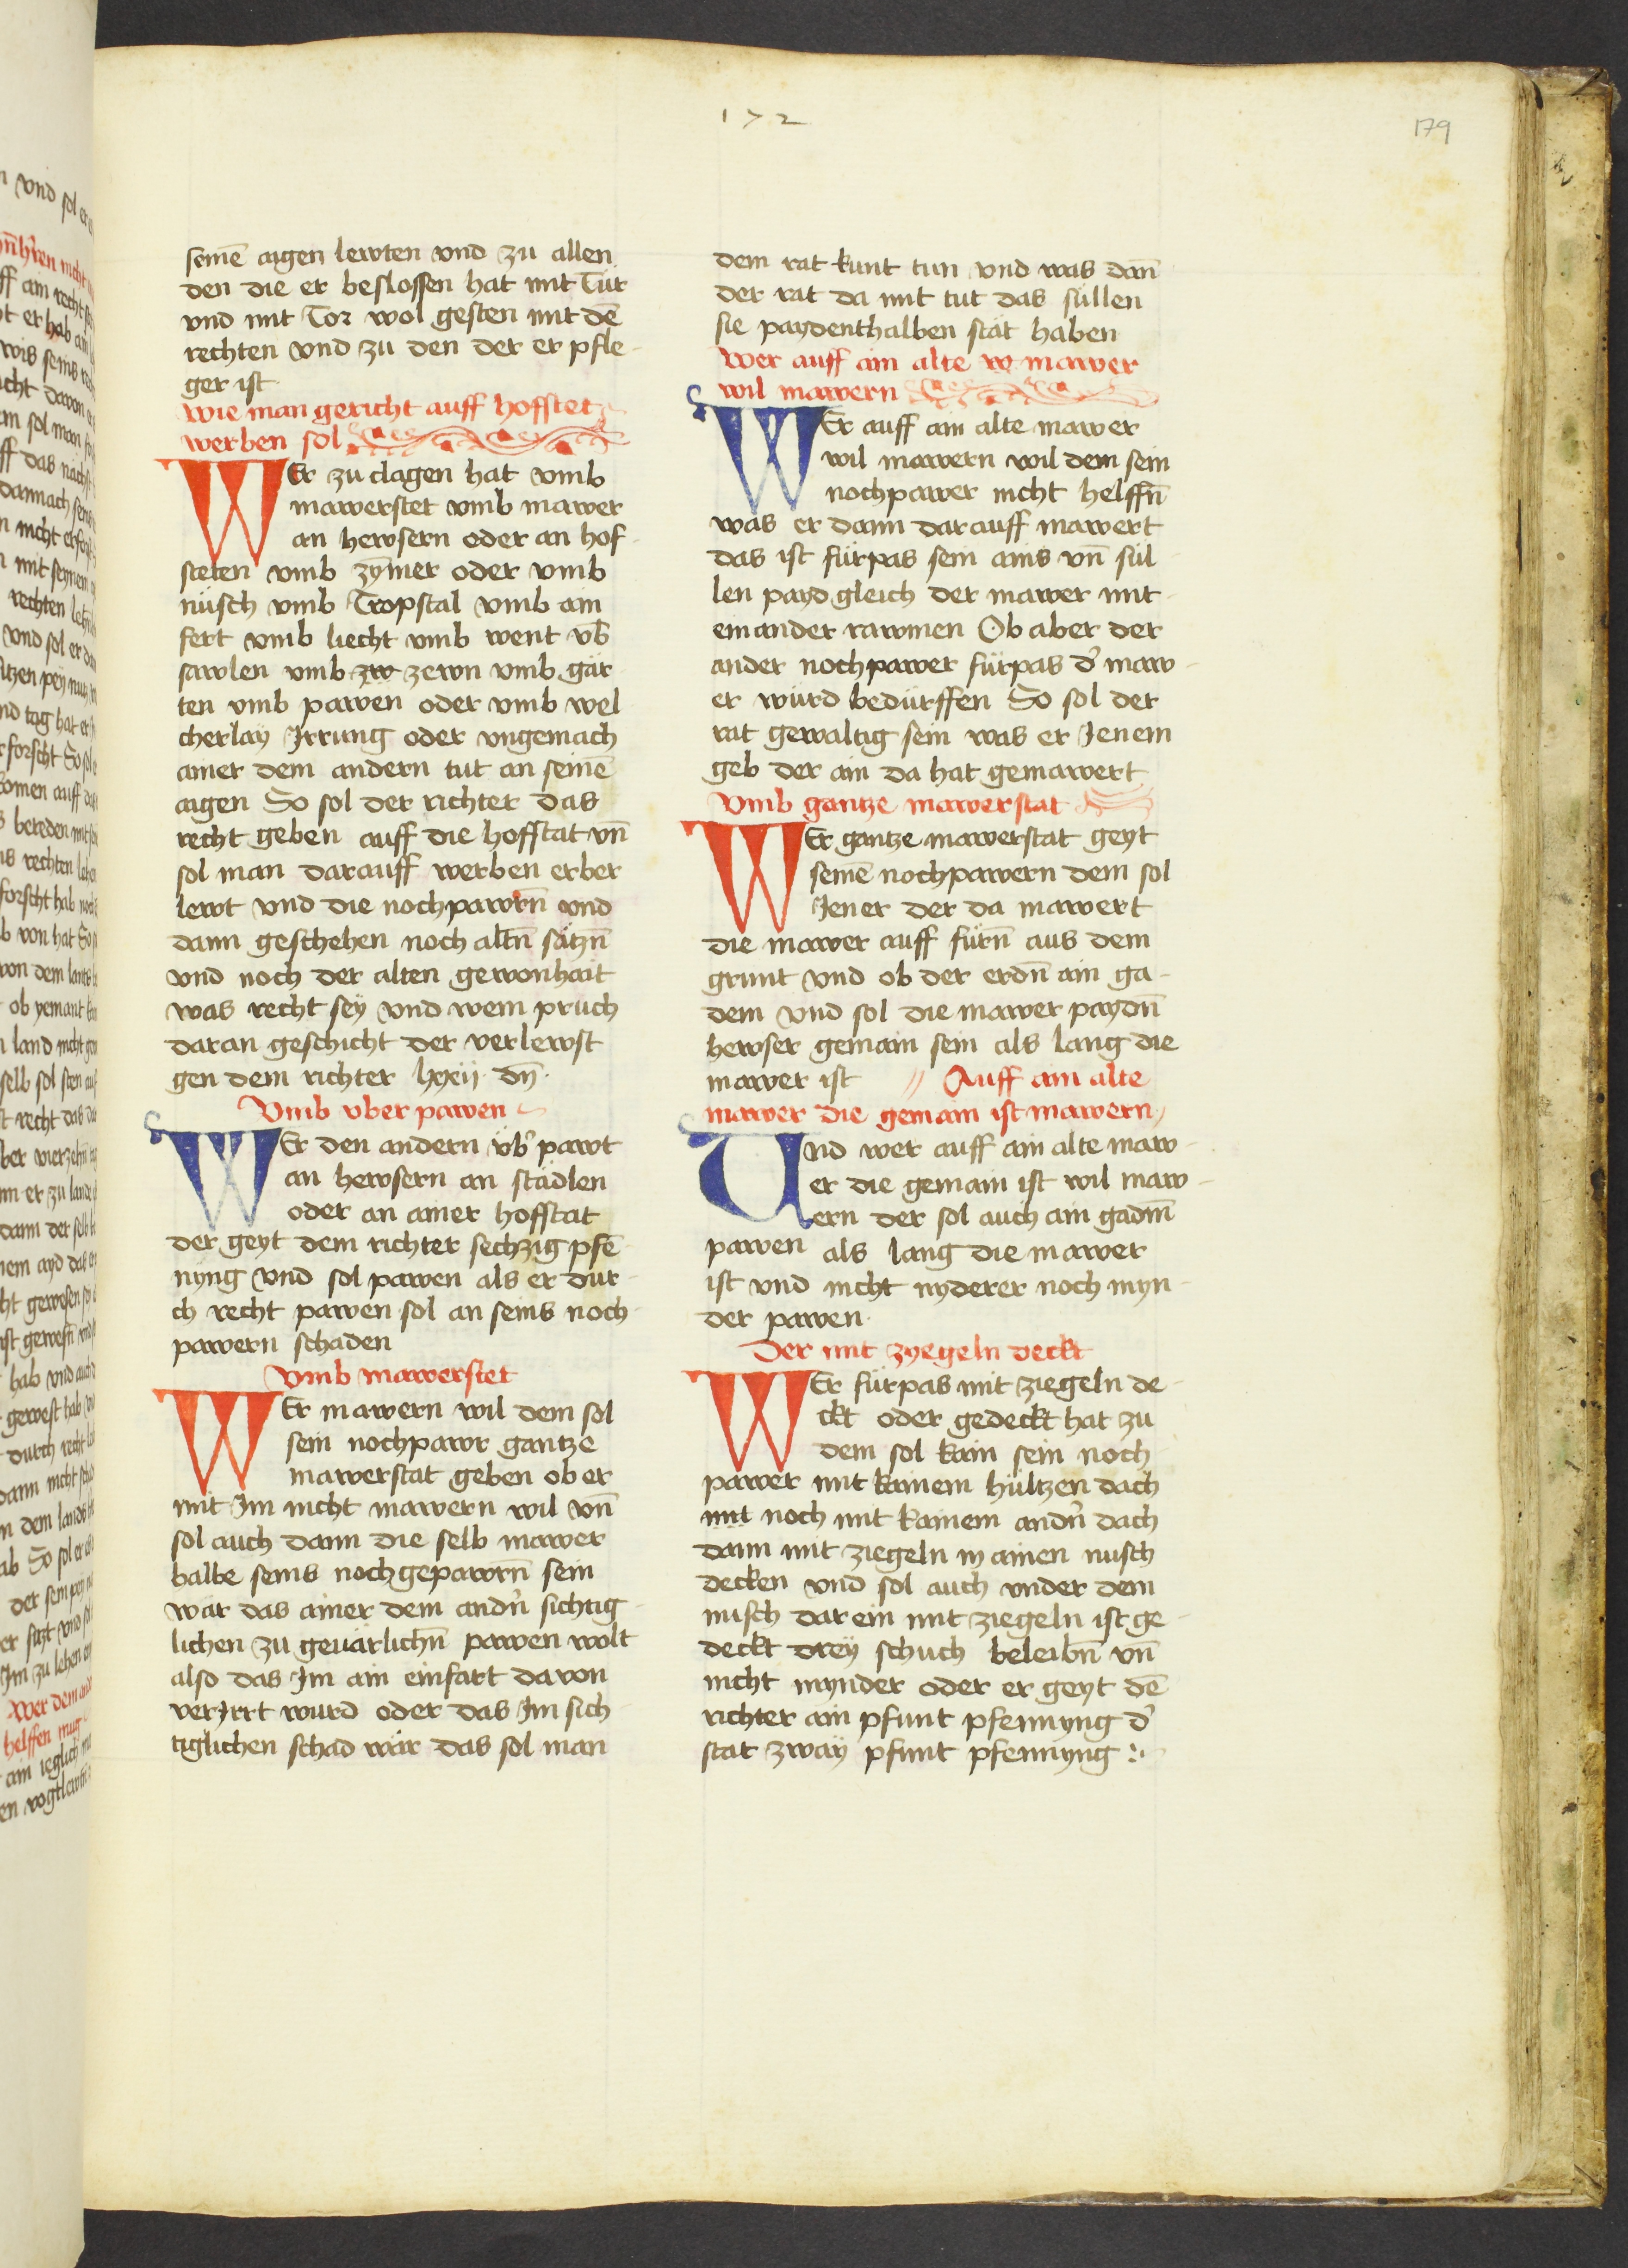 172
179
seinē aigen lewten vnd zu allen
den die er beslossen hat mit Tür
vnd mit Tor wol gesten mit dē
rechten vnd zu den der er pfle-
ger ist
wie man gericht auff hofstet
werben sol
WEr zu clagen hat vmb
mawerstet vmb mawer
an hewsern oder an hof-
steten vmb zymer oder vmb
nüsch vmb Tropstal vmb ain
fert vmb liecht vmb went vb
sawlen vmb zw zewn vmb gär-
ten vmb pawen oder vmb wel
cherlaÿ Irrung oder vngemach
ainer dem andern tut an seinē
aigen So sol der richter das
recht geben auff die hofstat vn̄
sol man darauff werben erber
lewt vnd die nochpawrn̄ vnd
dann geschehen noch altn̄ sätzn̄
vnd noch der alten gewonhait
was recht seÿ vnd wem pruch
daran geschicht der verlewst
gen dem richter lxxij dn̄
Vmb vber pawen
WEr den andern vb' pawt
an hewsern an städlen
oder an ainer hofstat
der geyt dem richter sechzig pfē
nyng vnd sol pawen als er dur-
ch recht pawen sol an seins noch-
pawern schaden
Vmb mawerstet
WEr mawern wil dem sol
sein nochpawr gantze
mawerstat geben ob er
mit Im nicht mawern wil vn̄
sol auch dann die selb mawer
halbe seins nochgepawrn̄ sein
wär das ainer dem andn̄ sichtig-
lichen zu geuärlichn̄ pawen wolt
also das Im ain einfart dauon
verJrrt wurd oder das Im sich-
tiglichen schad wär das sol man
dem rat kunt tun vnd was dan̄
der rat da mit tut das süllen
sie paydenthalben stät haben
wer auff ain alte w mawer
wil mawern
WEr auff ain alte mawer
wil mawern wil dem sein
nochpawer nicht helffn̄
was er dann darauff mawert
das ist fürpas sein ains vn̄ sül-
len payd gleich der mawer mit-
einander rawmen Ob aber der
ander nochpawer fürpas d' maw-
er würd bedürffen So sol der
rat gewaltig sein was er Jenem
geb der ain da hat gemawert
Vmb gantze mawerstat
WEr gantze mawerstat geyt
seinē nochpawern dem sol
Jener der da mawert
die mawer auff fürn̄ aus dem
grunt vnd ob der erdn̄ ain ga-
dem vnd sol die mawer paydn̄
hewser gemain sein als lang die
mawer ist // Auff ain alte
mawer die gemain ist mawern
Vnd wer auff ain alte maw-
er die gemain ist wil maw-
ern der sol auch ain gadm̄
pawen als lang die mawer
ist vnd nicht nyderer noch myn-
der pawen
Der mit zyegeln deckt
WEr fürpas mit ziegeln de-
ckt oder gedeckt hat zu
dem sol kain sein noch-
pawer mit kainem hültzen dach
mit noch mit kainem andn̄ dach
dann mit ziegeln in ainen nusch
decken vnd sol auch vnder dem
nusch dar ein mit ziegeln ist ge-
deckt dreÿ schuch beleibn̄ vn̄
nicht mynder oder er geyt dē
richter ain pfunt pfennyng d'
stat zwaÿ pfunt pfennyng